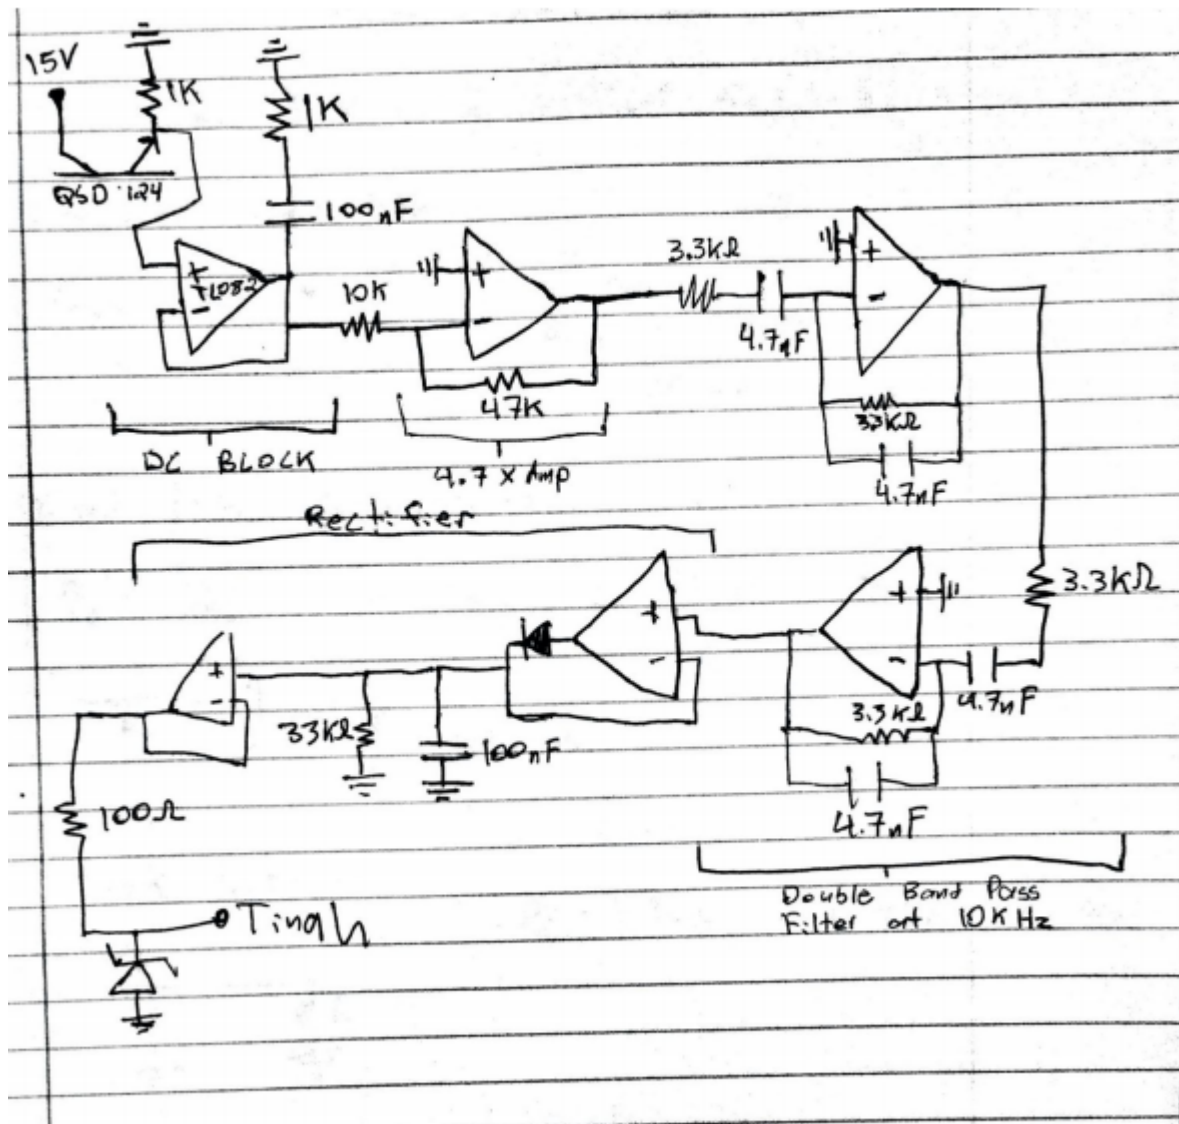 15V
1K
1K
QSD 124
100nF
+
TL082
-
10K
+
-
47K
3.3kΩ
4.7nF
+
-
3.3kΩ
4.7nF
DC BLOCK
4.7 x Amp
Rectifier
3.3KΩ
+
-
4.7nF
3.3KΩ
4.7nF
+
-
+
-
33KΩ
100nF
100Ω
Double Band Pass
Filter at 10KHz